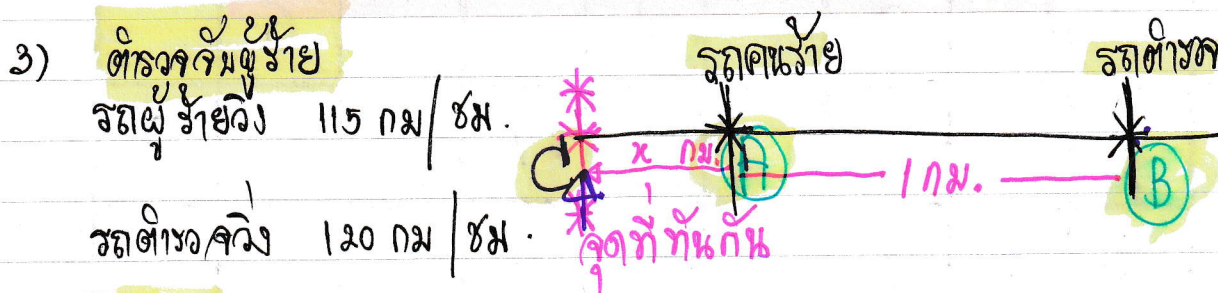 3) ตำรวจจับผู้ร้าย
รถผู้ร้ายวิ่ง 115 กม/ชม.
รถตำรวจวิ่ง 120 กม/ชม.
รถคนร้าย รถตำรวจ
C x กม. A 1 กม. B
จุดที่ทันกัน